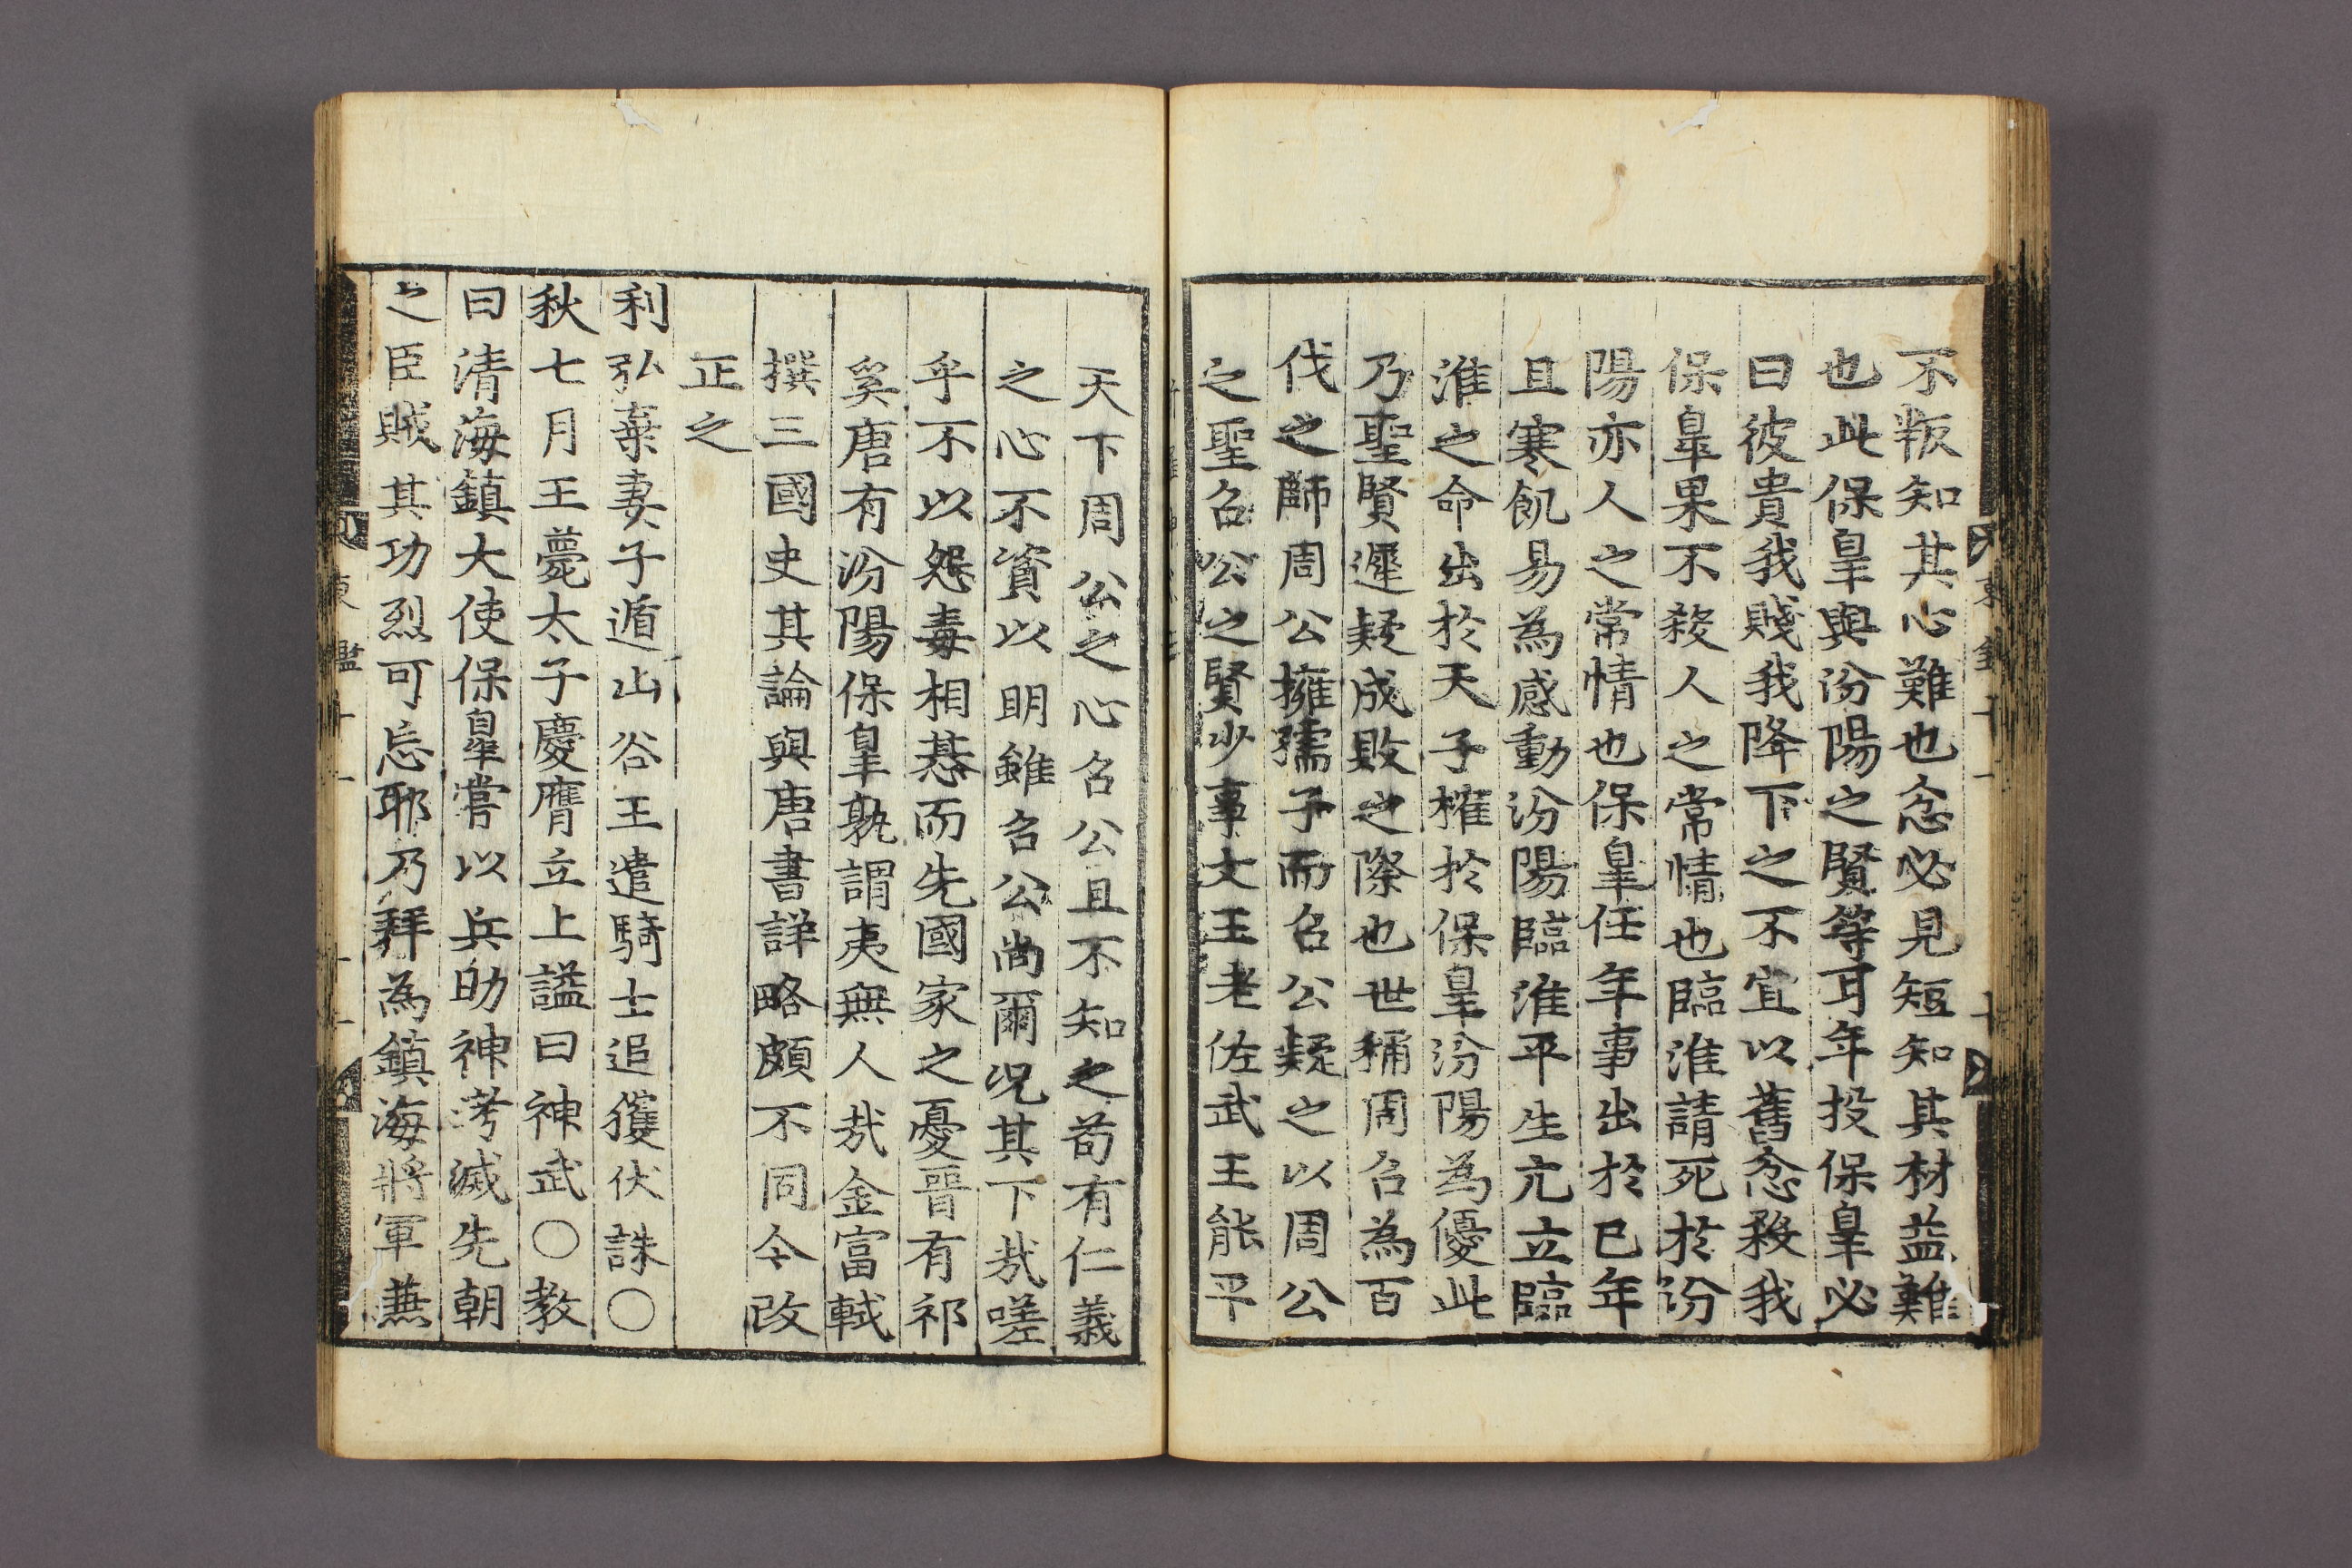 不叛知其心難也忿必見短知其材益難
也此保臯與汾陽之賢等耳年投保臯必
曰彼貴我賤我降下之不宜以舊忿殺我
保臯果不殺人之常情也臨淮請死於汾
陽亦人之常情也保臯任年事出於已年
且寒飢易為感動汾陽臨淮平生亢立臨
淮之命出於天子搉於保臯汾陽為優此
乃聖賢遲疑成敗之際也世稱周召為百
伐之師周公擁孺子而召公疑之以周公
之聖召公之賢少事文王老佐武王能平
天下周公之心召公且不知之苟有仁義
之心不資以明雖召公尚爾况其下㢤嗟
乎不以怨毒相惎而先國家之憂晋有祁
奚唐有汾陽保臯孰謂夷無人㢤金富軾
撰三國史其論與唐書詳略頗不同今改
正之
利弘棄妻子遁山谷王遣騎士追獲伏誅〇
秋七月王薨太子慶膺立上謚曰神武〇教
曰清海鎮大使保臯嘗以兵助神考滅先朝
之臣賊其功烈可忘耶乃拜為鎮海將軍蕪
東鑑十一
十一